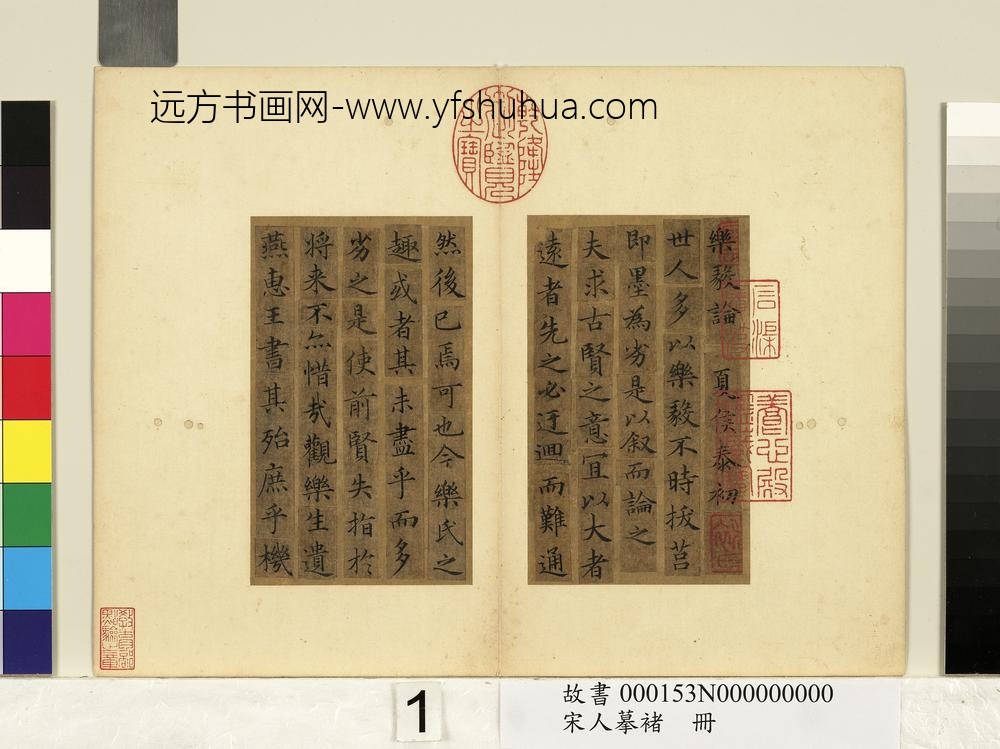 远方书画网-www.yfshuhua.com
乾隆御覽之寶
樂毅論 夏侯泰初
世人多以樂毅不時拔莒
即墨為劣是以叙而論之
夫求古賢之意冝以大者
遠者先之必迂迴而難通
然後已焉可也今樂氏之
趣或者其未盡乎而多
劣之是使前賢失指於
将来不亦惜哉觀樂生遺
燕惠王書其殆庶乎機
養心殿
1
故書 000153N000000000
宋人摹褚 冊